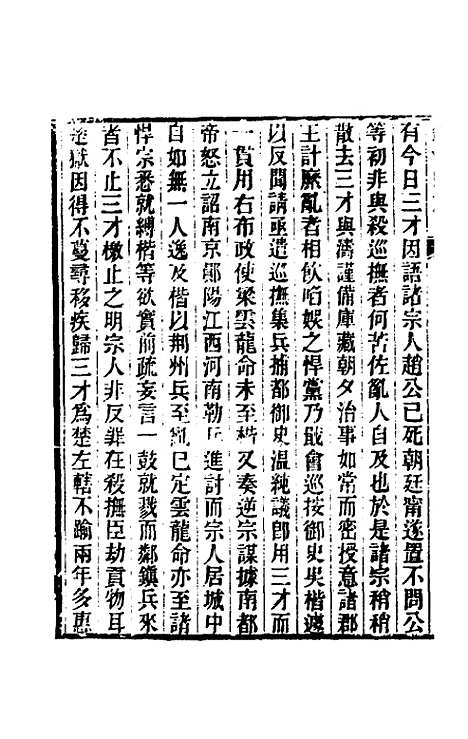 有今日三才因語諸宗人趙公已死朝廷甯遂置不問公
等初非與殺巡撫者何苦佐亂人自及也於是諸宗稍稍
散去三才與濤謹備庫藏朝夕治事如常而密授意諸郡
王計縻亂者相飲啗娛之悍黨乃戢會巡按御史吳楷遽
以反聞請亟遣巡撫集兵捕都御史溫純議卽用三才而
一貫用右布政使梁雲龍命未至楷又奏逆宗謀據南都
帝怒立詔南京鄖陽江西河南勒兵進討而宗人居城中
自如無一人逸及楷以荆州兵至亂已定雲龍命亦至諸
悍宗悉就縛楷等欲實前疏妄言一鼓就戮而鄰鎮兵來
者不止三才檄止之明宗人非反罪在殺撫臣劫貢物耳
楚獄因得不蔓尋移疾歸三才爲楚左轄不踰兩年多惠